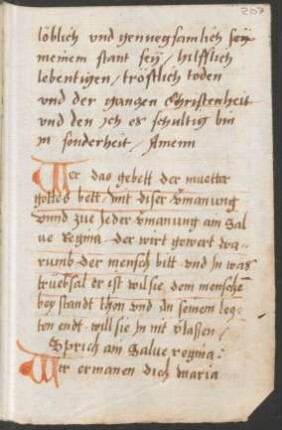 207
löblich vnd genuegsamlich seÿ
meinem stant seÿ / hilfflich
lebentigen / tröstlich toden
vnd der gantzen Christenheit
vnd den ich es schultig bin
in sonderheit / Amenn
Wer das gebett der muetter
gottes bett / mit diser vmanung
vnnd zue jeder vmanung ain Sal
ue Regina der wirt gewert wa-
rumb der mensch bitt vnd in was
trüebsal er ist wil sie dem mensche
beÿstandt thon vnd in seinem letz
ten endt will sie in nit v̈lassen /
Sprich ain Salue regina :
Wir ermanen dich maria